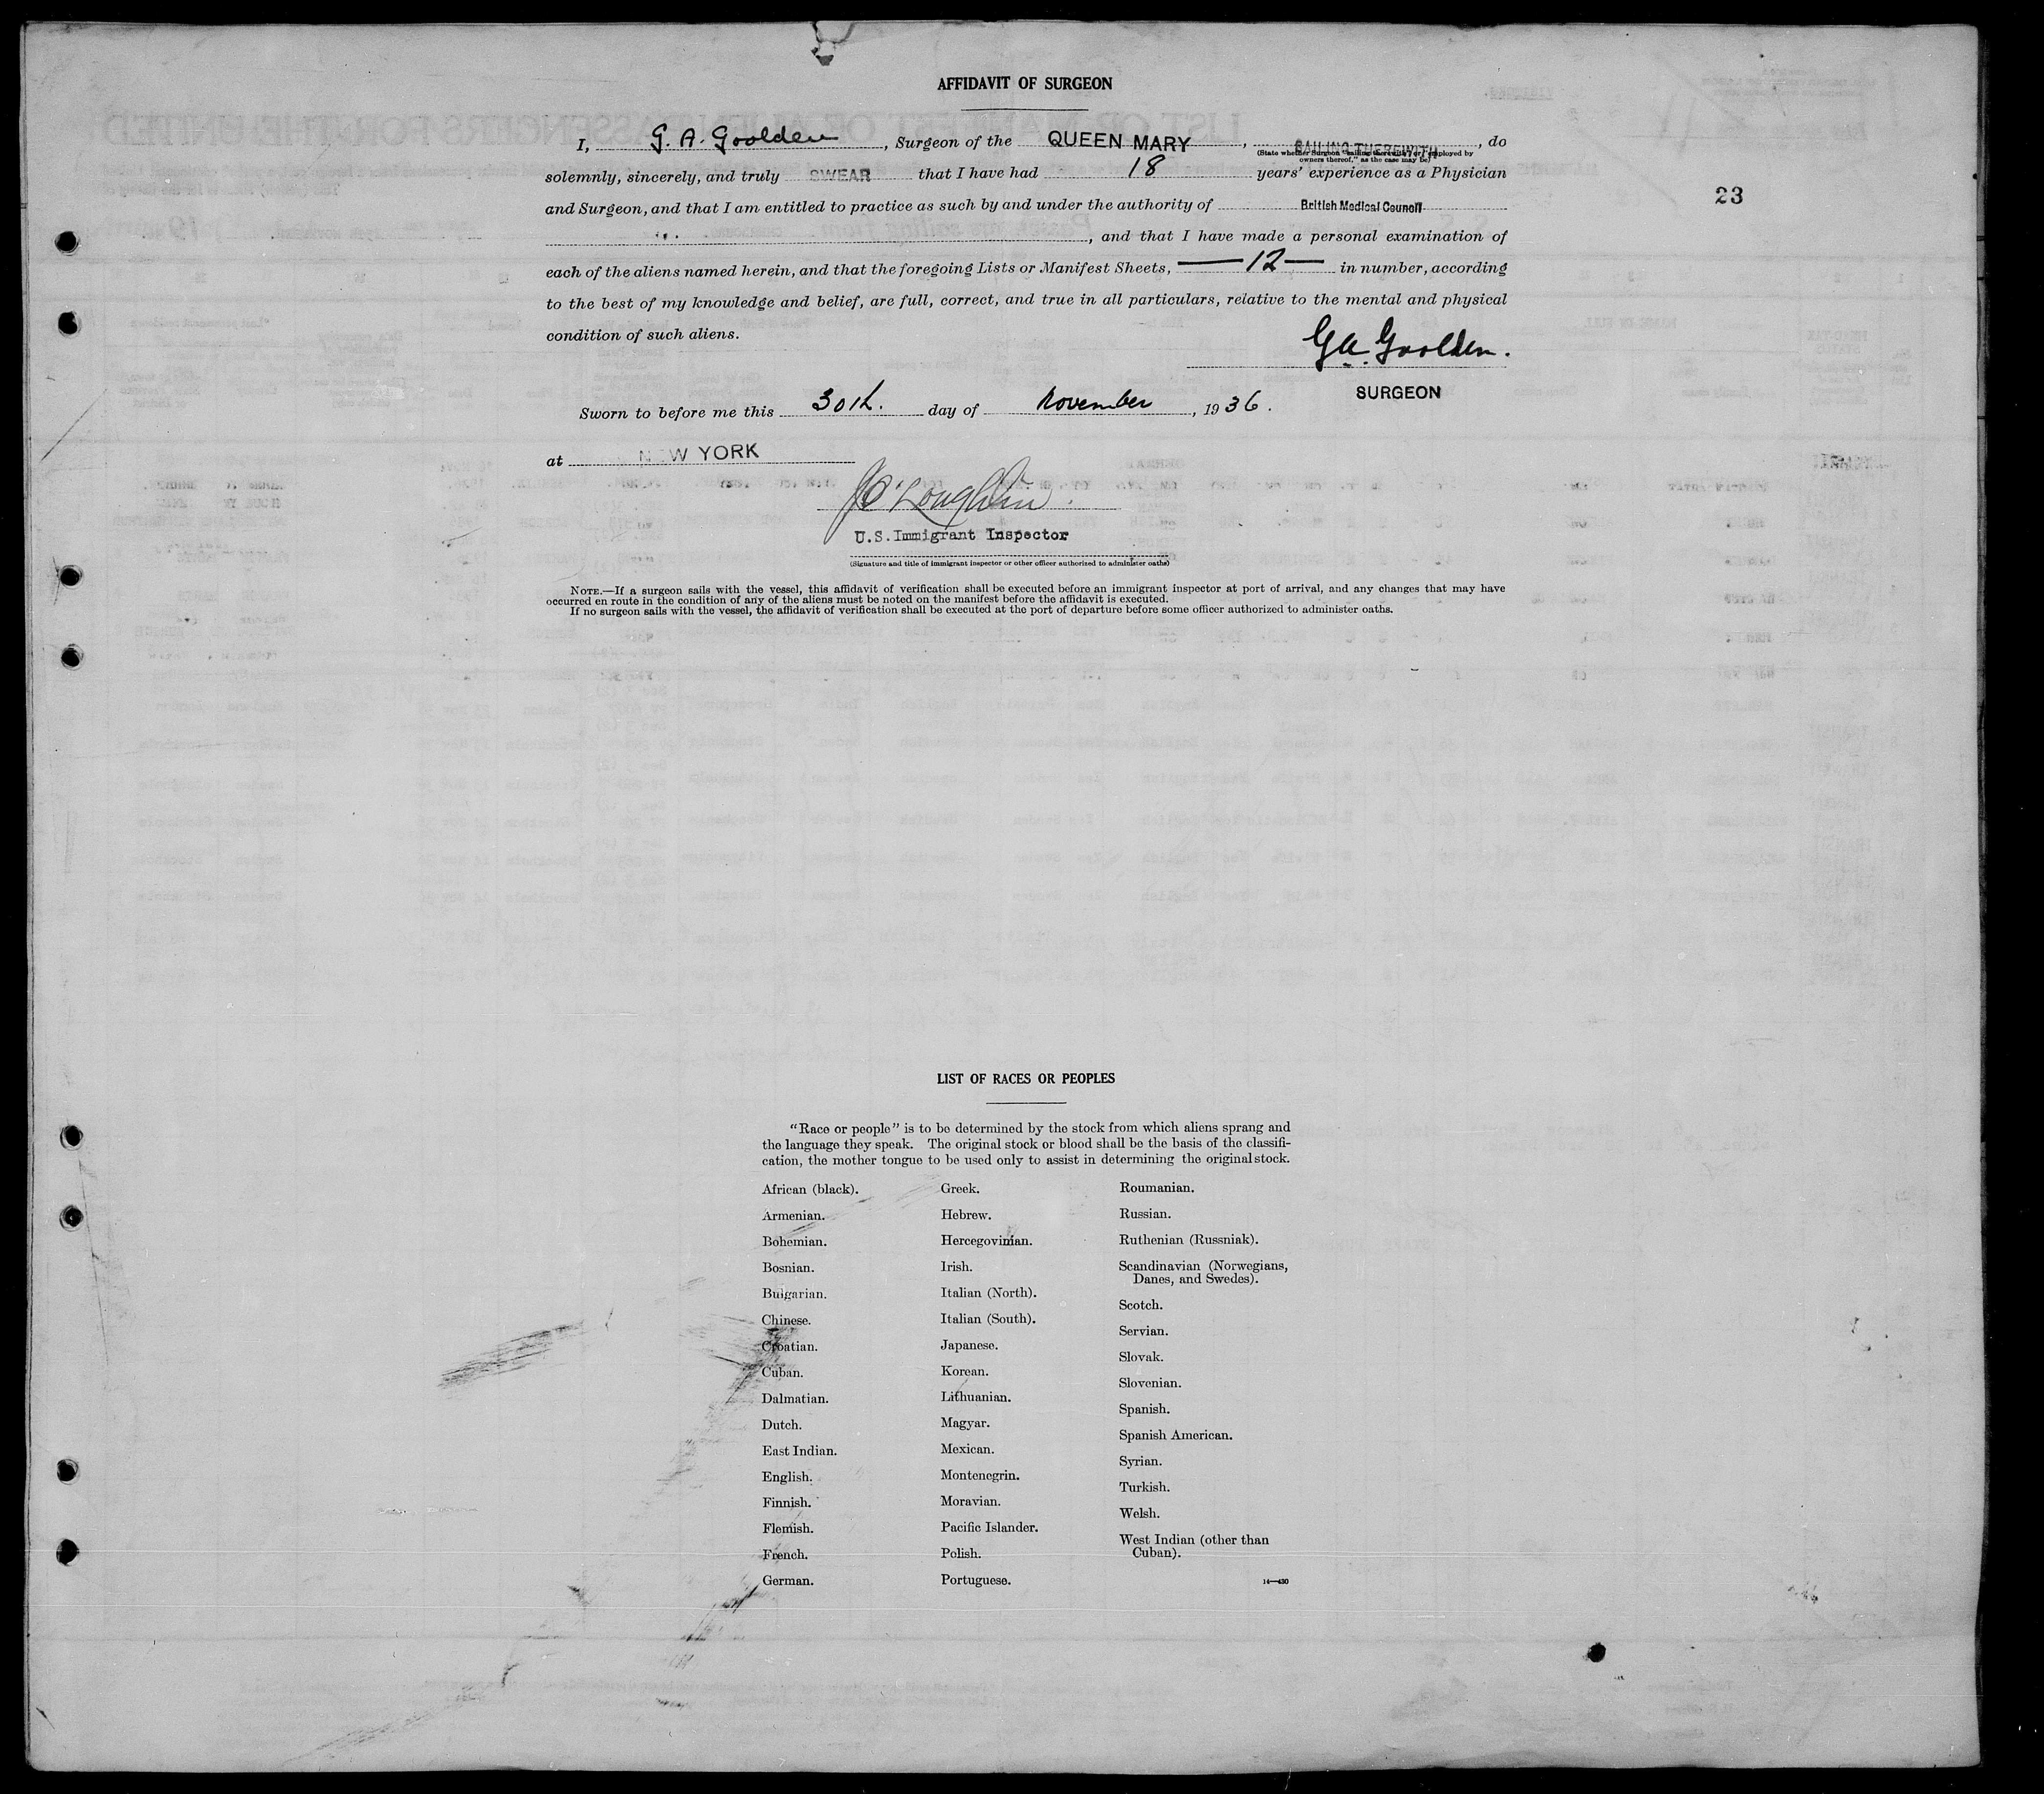 AFFIDAVIT OF SURGEON
I, G. A. Goolden, Surgeon of the QUEEN MARY, SAILING THEREWITH, do
(State whether Surgeon "sailing therewith," or "employed by
owners thereof," as the case may be)
solemnly, sincerely, and truly SWEAR that I have had 18 years' experience as a Physician
23
and Surgeon, and that I am entitled to practice as such by and under the authority of British Medical Council
, and that I have made a personal examination of
each of the aliens named herein, and that the foregoing Lists or Manifest Sheets, 12 in number, according
to the best of my knowledge and belief, are full, correct, and true in all particulars, relative to the mental and physical
condition of such aliens.
G A Goolden.
SURGEON
Sworn to before me this 30th. day of November, 1936.
at NEW YORK
J O'Loughlin.
U.S. Immigrant Inspector
(Signature and title of immigrant inspector or other officer authorized to administer oaths)
NOTE.—If a surgeon sails with the vessel, this affidavit of verification shall be executed before an immigrant inspector at port of arrival, and any changes that may have
occurred en route in the condition of any of the aliens must be noted on the manifest before the affidavit is executed.
If no surgeon sails with the vessel, the affidavit of verification shall be executed at the port of departure before some officer authorized to administer oaths.
LIST OF RACES OR PEOPLES
"Race or people" is to be determined by the stock from which aliens sprang and
the language they speak. The original stock or blood shall be the basis of the classifi-
cation, the mother tongue to be used only to assist in determining the original stock.
African (black).
Armenian.
Bohemian.
Bosnian.
Bulgarian.
Chinese.
Croatian.
Cuban.
Dalmatian.
Dutch.
East Indian.
English.
Finnish.
Flemish.
French.
German.
Greek.
Hebrew.
Hercegovinian.
Irish.
Italian (North).
Italian (South).
Japanese.
Korean.
Lithuanian.
Magyar.
Mexican.
Montenegrin.
Moravian.
Pacific Islander.
Polish.
Portuguese.
Roumanian.
Russian.
Ruthenian (Russniak).
Scandinavian (Norwegians,
Danes, and Swedes).
Scotch.
Servian.
Slovak.
Slovenian.
Spanish.
Spanish American.
Syrian.
Turkish.
Welsh.
West Indian (other than
Cuban).
14—430